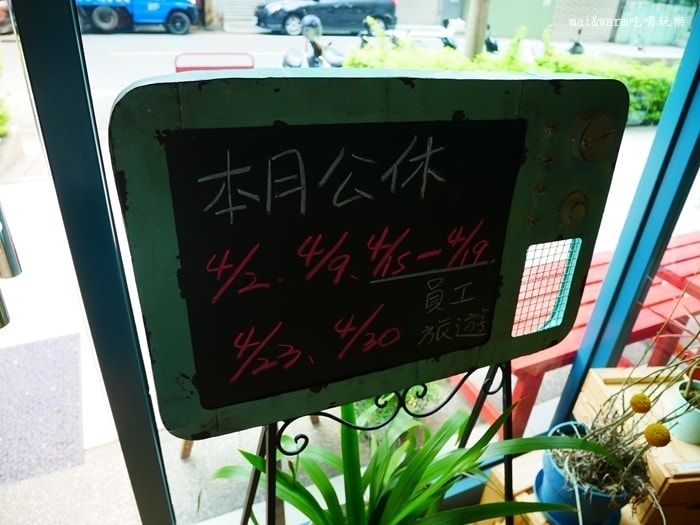 mai&warm吃喝玩樂
本月公休
4/2、4/9、4/15－4/19
員工
旅遊
4/23、4/30